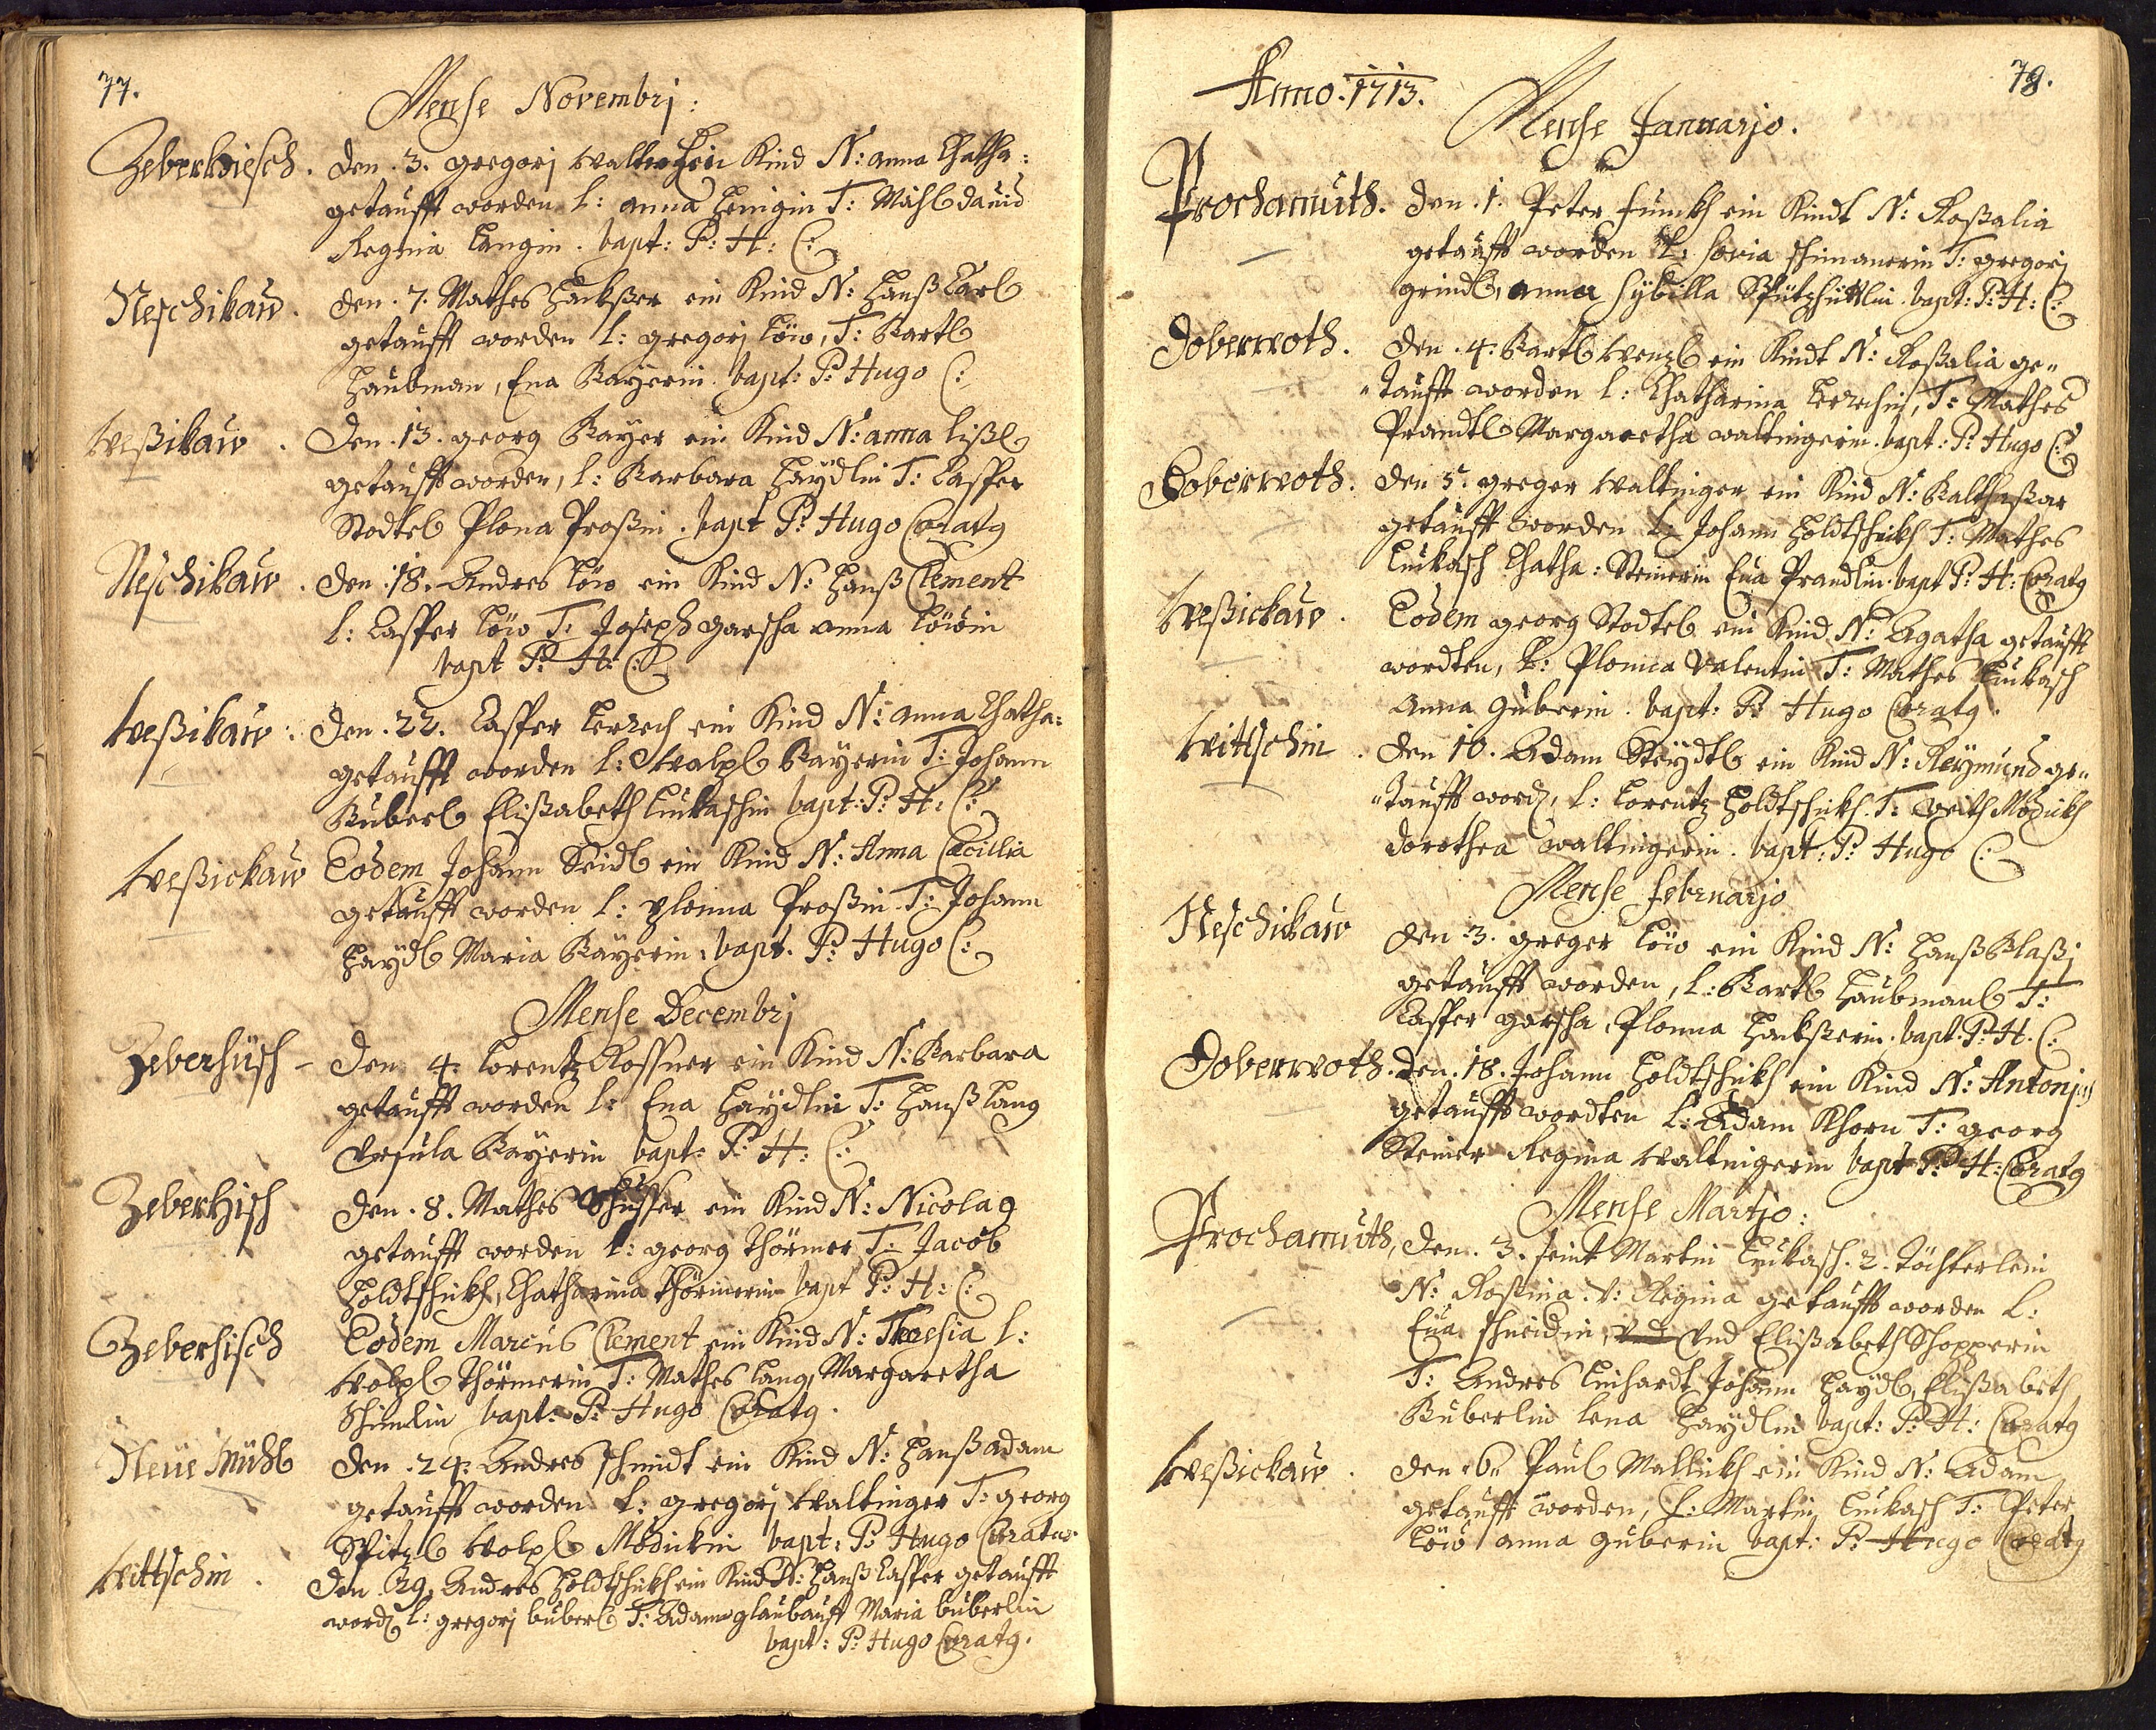 77.
Mense Novembrj:
Zeberhiesch. den. 3. gregorj Walter ein Kind N: anna Chatha:
getaufft worden L: anna Henigin T: Michl dauid
Regina Langin. bapt: P: H: C:
Neschikaw. den. 7. Mathes Hackßer ein Kind N: Hanß Carl
getaufft worden L: gregorj Löw, T: Bartl
Haubman, Eua Bayerin. bapt: P: Hugo C:
Weßikaw. Den. 13. georg Bayer ein Kind N: anna lißl
getaufft worden, L: Barbara Haydlin T: Casper
Stodtel Plona Proßin. bapt P: Hugo Coratg
Neschikaw. den. 18. Andres Löw ein Kind N: Hanß Clement
L: Casper Löw T: Joseph garscha anna Löwin
bapt P: H: C:
Weßikaw: den. 22. Casper Lerech ein Kind N: anna Chatha:
getaufft worden L: Walpl Bayerin T: Johann
Buberl Elißabeth Lukaschin bapt: P: H: C:
Weßickaw Eodem Johann Seidl ein Kind N: Anna Cæcillia
getaufft worden L: Plonna Proßin T: Johann
Haydl Maria Bayerin. bapt. P: Hugo C:
Mense Decembrj
Zeberhüsch - den 4. Lorentz Rossner ein Kind N: Barbara
getaufft worden L: Eua Haydlin T: Hanß Lang
Vrsula Bayerin bapt: P: H: C:
Zeberhisch den. 8. Mathes Schusser ein Kind N: Nicolag
getaufft worden L: georg Thörmer T: Jacob
Holdtschickh, Chatharina Thörmerin bapt P: H: C:
Zeberhisch Eodem Marcus Clement ein Kind N: Theresia L:
Wolpl Thörmerin T: Mathes Lang, Margaretha
Schimlin bapt: P: Hugo Coratg.
Neue Mühl den. 24. Andres schmidt ein Kind N: Hanß adam
getaufft worden L: gregorj Waltinger T: georg
Spitzl Wolpl Modickin bapt: P: Hugo Coratus
Wittschin. den. 29. Andres Holdtschickh ein Kind N: Hanß Casper getaufft
word L: gregorj buberl T: Adam glaubauff Maria buberlin
bapt: P: Hugo Coratg.
Anno. 1713.
78.
Mense Januarjo.
Prochamuth. den. 1. Peter Funckh ein Kindt N: Roßalia
getaufft worden L: Sovia schimanerin T: gregorj
grindl, anna Sybilla Spützhüttlin bapt: P: H: C:
Doberwoth. den. 4. Bartl Wenzl ein Kindt N: Roßalia ge„
„taufft worden L: Chatharina Lerechin, T: Mathes
Prandtl Margaretha waltingerin. bapt: P: Hugo C:
Doberwoth. den 5. greger Waltinger ein Kind N: Balthaßar
getaufft worden L: Johann Holdtschickh T: Mathes
Luckasch Chatha: Steinerin Eua Prandlin bapt P: H: Coratg
Weßickaw. Eodem georg Stodtel ein Kind N: Agatha getaufft
wordten, L: Plonica Valentin T: Mathes Luckasch
Anna Guberin. bapt: P: Hugo Coratg.
Wittschin. den 10. Adam Steydtl ein Kind N: Reymund ge„
„taufft word, L: Lorentz Holdtschickh T: Veith Modickh
dorothea waltingerin. bapt: P: Hugo C:
Mense Februarjo
Neschikaw den. 3. greger Löw ein Kind N: Hanß Blaßj
getaufft worden, L: Bartl Haubmanl T:
Casper garscha, Plonna Hackßerin. bapt. P: H. C:
Doberwoth. den. 18. Johann Holdtschickh ein Kind N: Antonj
getaufft wordten L: Adam Khorn T: georg
Steiner Regina Waltingerin bapt P: H: Coratg
Mense Martjo:
Prochamuth, den. 3. seint Martin Luckasch. 2. Töchterlein
N: Rosina. V: Regina getaufft worden L:
Eua schneidin, vnd Elißabeth Schopperin
T: Andres Linhardt Johann Haydl, Elißabeth
Buberlin Lena Haydlin bapt: P: H: Coratg
Weßickaw. den. 6. Paul Mallickh ein Kind N: Adam
getaufft worden, L: Martin Luckasch T: Peter
Löw anna guberin bapt: P: Hugo Coratg